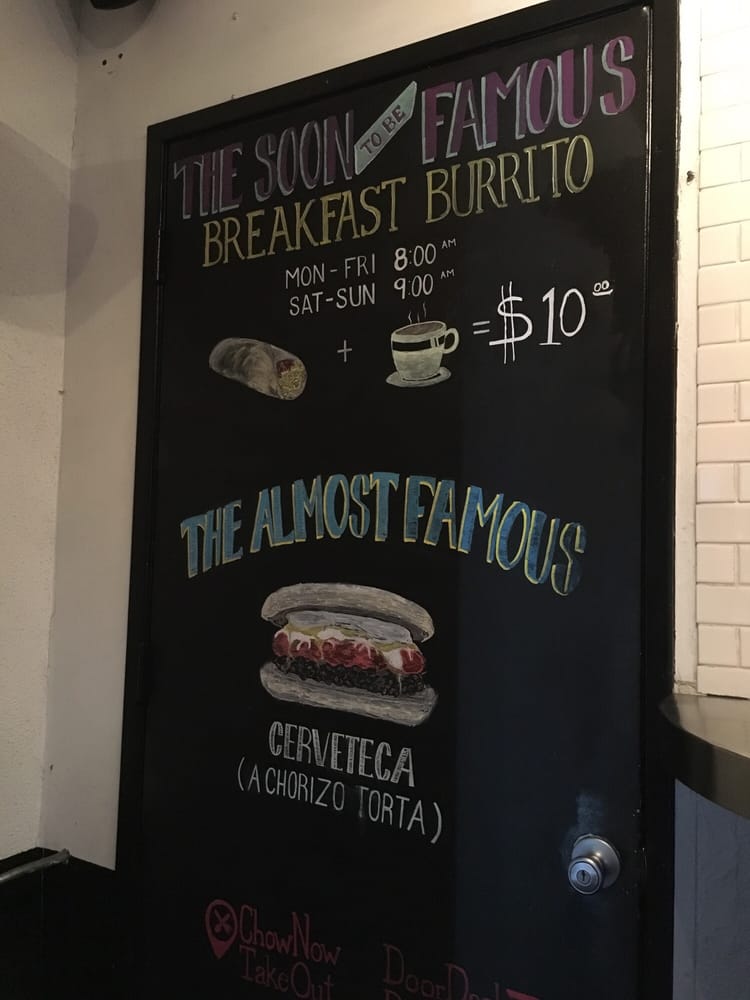 THE SOON TO BE FAMOUS
BREAKFAST BURRITO
MON-FRI 8:00 AM
SAT-SUN 9:00 AM
+ = $10.00
THE ALMOST FAMOUS
CERVETECA
(A CHORIZO TORTA)
ChowNow
TakeOut